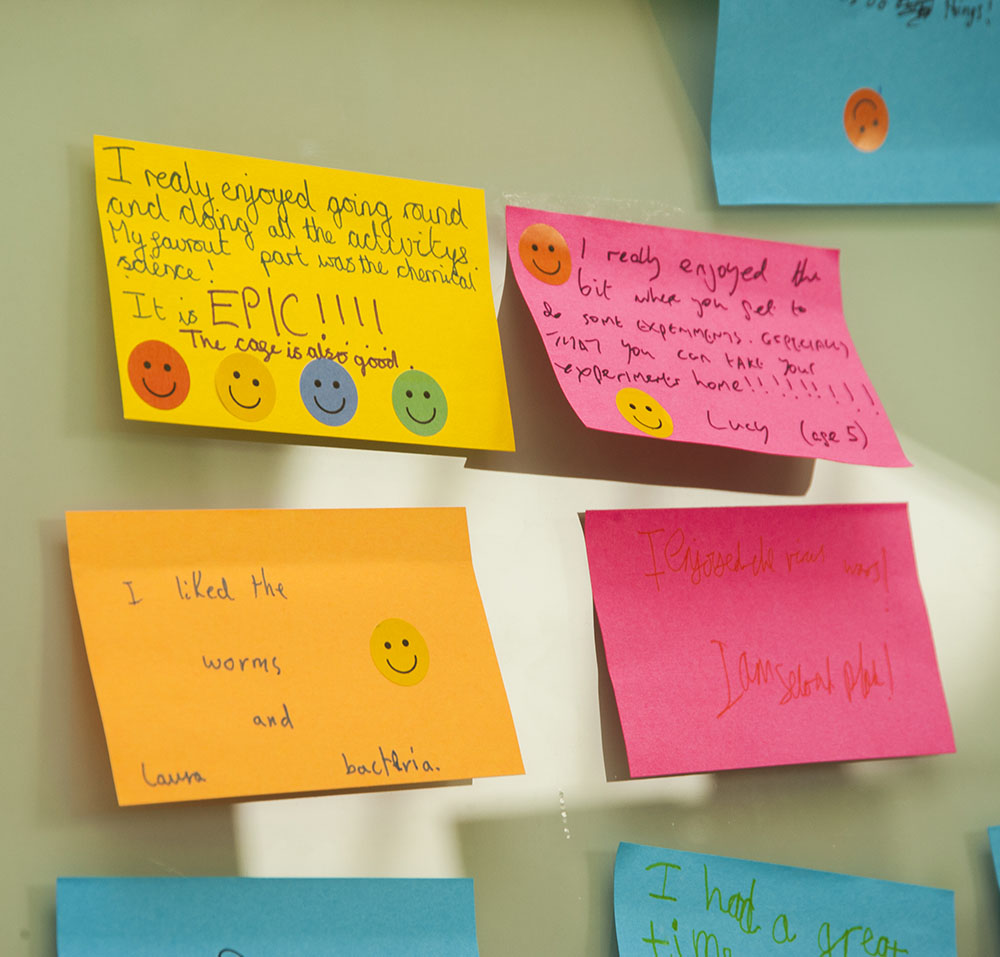 things!
I realy enjoyed going round
and doing all the activitys.
My favrout part was the chemical
science!
It is EPIC!!!!
The cage is also good.
I really enjoyed the
bit where you get to
do some experiments. especially
THAT you can take your
experiments home!!!!!!!!!
Lucy (age 5)
I liked the
worms
and
bacteria.
Laura
I enjoyed
I am second
I had a great
time